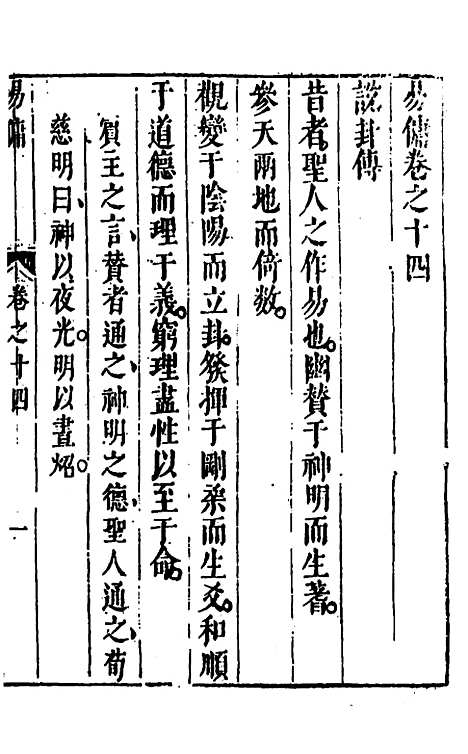 易傭卷之十四
說卦傳
昔者聖人之作易也。幽贊于神明而生蓍。
參天兩地而倚數。
觀變于陰陽而立卦。發揮于剛柔而生爻。和順
于道德而理于義。窮理盡性以至于命。
賓主之言、贊者通之、神明之德、聖人通之、荀
慈明曰、神以夜光。明以晝炤。
易傭
卷之十四
一